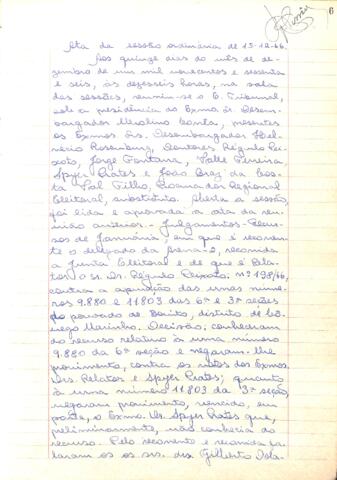 6
Ata da sessão ordinária de 15-12-66.
Aos quinze dias do mês de de-
zembro de um mil novecentos e sessenta
e seis, às dezesseis horas, na sala
das sessões, reuniu-se o E. Tribunal,
sob a presidência do Exmo sr. Desem-
bargador Merolino Corrêa, presentes
os Exmos Srs. Desembargador Hel-
vécio Rosenburg, Doutores Régulo Pei-
xoto, Jorge Fontana, Valle Ferreira,
Spyer Prates e João Braz da Cos-
ta Val Filho, Procurador Regional
Eleitoral, substituto. Aberta a sessão,
foi lida e aprovada a ata da reu-
nião anterior. - Julgamentos - Recur-
sos de Januária, em que é recorren-
te o delegado da Arena-2, recorrida
a Junta Eleitoral e de que é Rela-
tor o sr. Dr. Régulo Peixoto: nº 198/66,
contra a apuração das urnas núme-
ros 9.880 e 11803 das 6ª e 3ª seções
do povoado de distrito de Cô-
nego Marinho. Decisão: conheceram
do recurso relativo à urna número
9.880 da 6ª seção e negaram-lhe
provimento, contra os votos dos Exmos.
Srs. Relator e Spyer Prates; quanto
à urna número 11803 da 3ª seção,
negaram provimento, vencido, em
parte, o Exmo. Sr. Spyer Prates que,
preliminarmente, não conhecia do
recurso. Pelo recorrente e recorrida fa-
laram os srs. drs. Gilberto Dola-